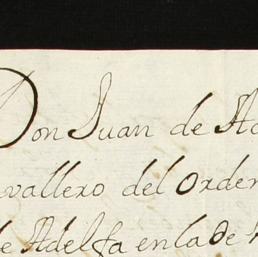 Don Juan de Ad
vallero del Orden
de Adelfa en la de